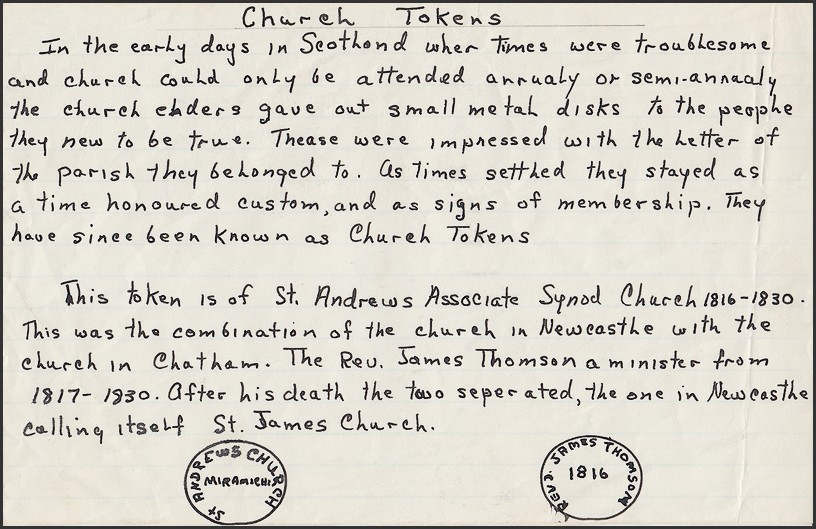 Church Tokens
In the early days in Scotland wher times were troublesome
and church could only be attended annualy or semi-annualy
the church elders gave out small metal disks to the people
they new to be true. Thease were impressed with the letter of
the parish they belonged to. As times settled they stayed as
a time honoured custom, and as signs of membership. They
have since been known as Church Tokens
This token is of St. Andrews Associate Synod Church 1816-1830.
This was the combination of the church in Newcastle with the
church in Chatham. The Rev. James Thomson a minister from
1817-1830. After his death the two seperated, the one in Newcastle
calling itself St. James Church.
St ANDREWS CHURCH
MIRAMICHI
REVD. JAMES THOMSON
1816